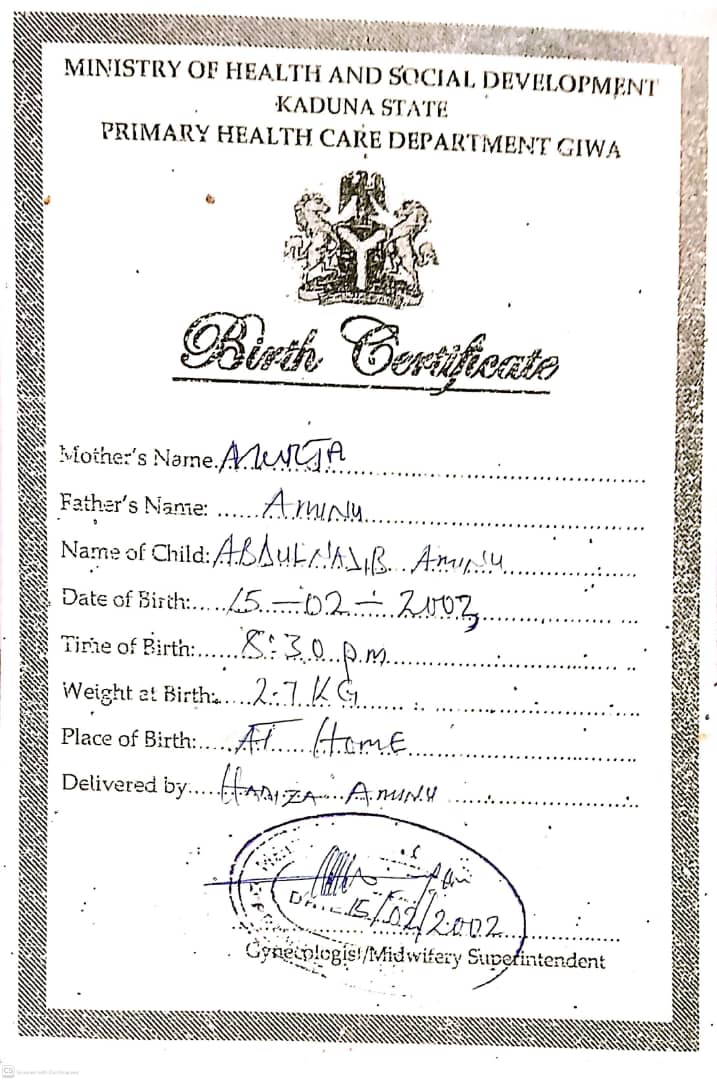 MINISTRY OF HEALTH AND SOCIAL DEVELOPMENT
KADUNA STATE
PRIMARY HEALTH CARE DEPARTMENT GIWA
Birth Certificate
Mother's Name. AMURJA
Father's Name: AMINU
Name of Child: ABDULNAJIB AMINU
Date of Birth: 15-02-2002
Time of Birth: 8:30 p.m
Weight at Birth: 2.7 KG
Place of Birth: AT HOME
Delivered by: HADIZA AMINU
15/02/2002
Gynecologist/Midwifery Superintendent
CS Scanned with CamScanner